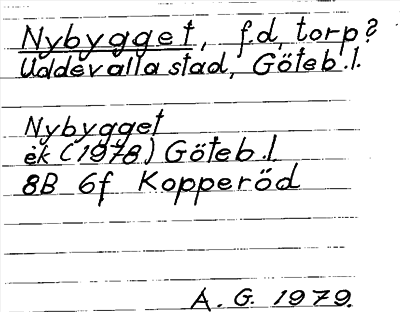 Nybygget, f.d. torp?
Uddevalla stad, Göteb.l.
Nybygget
ek (1978) Göteb.l.
8B 6f Kopperöd
A. G. 1979.